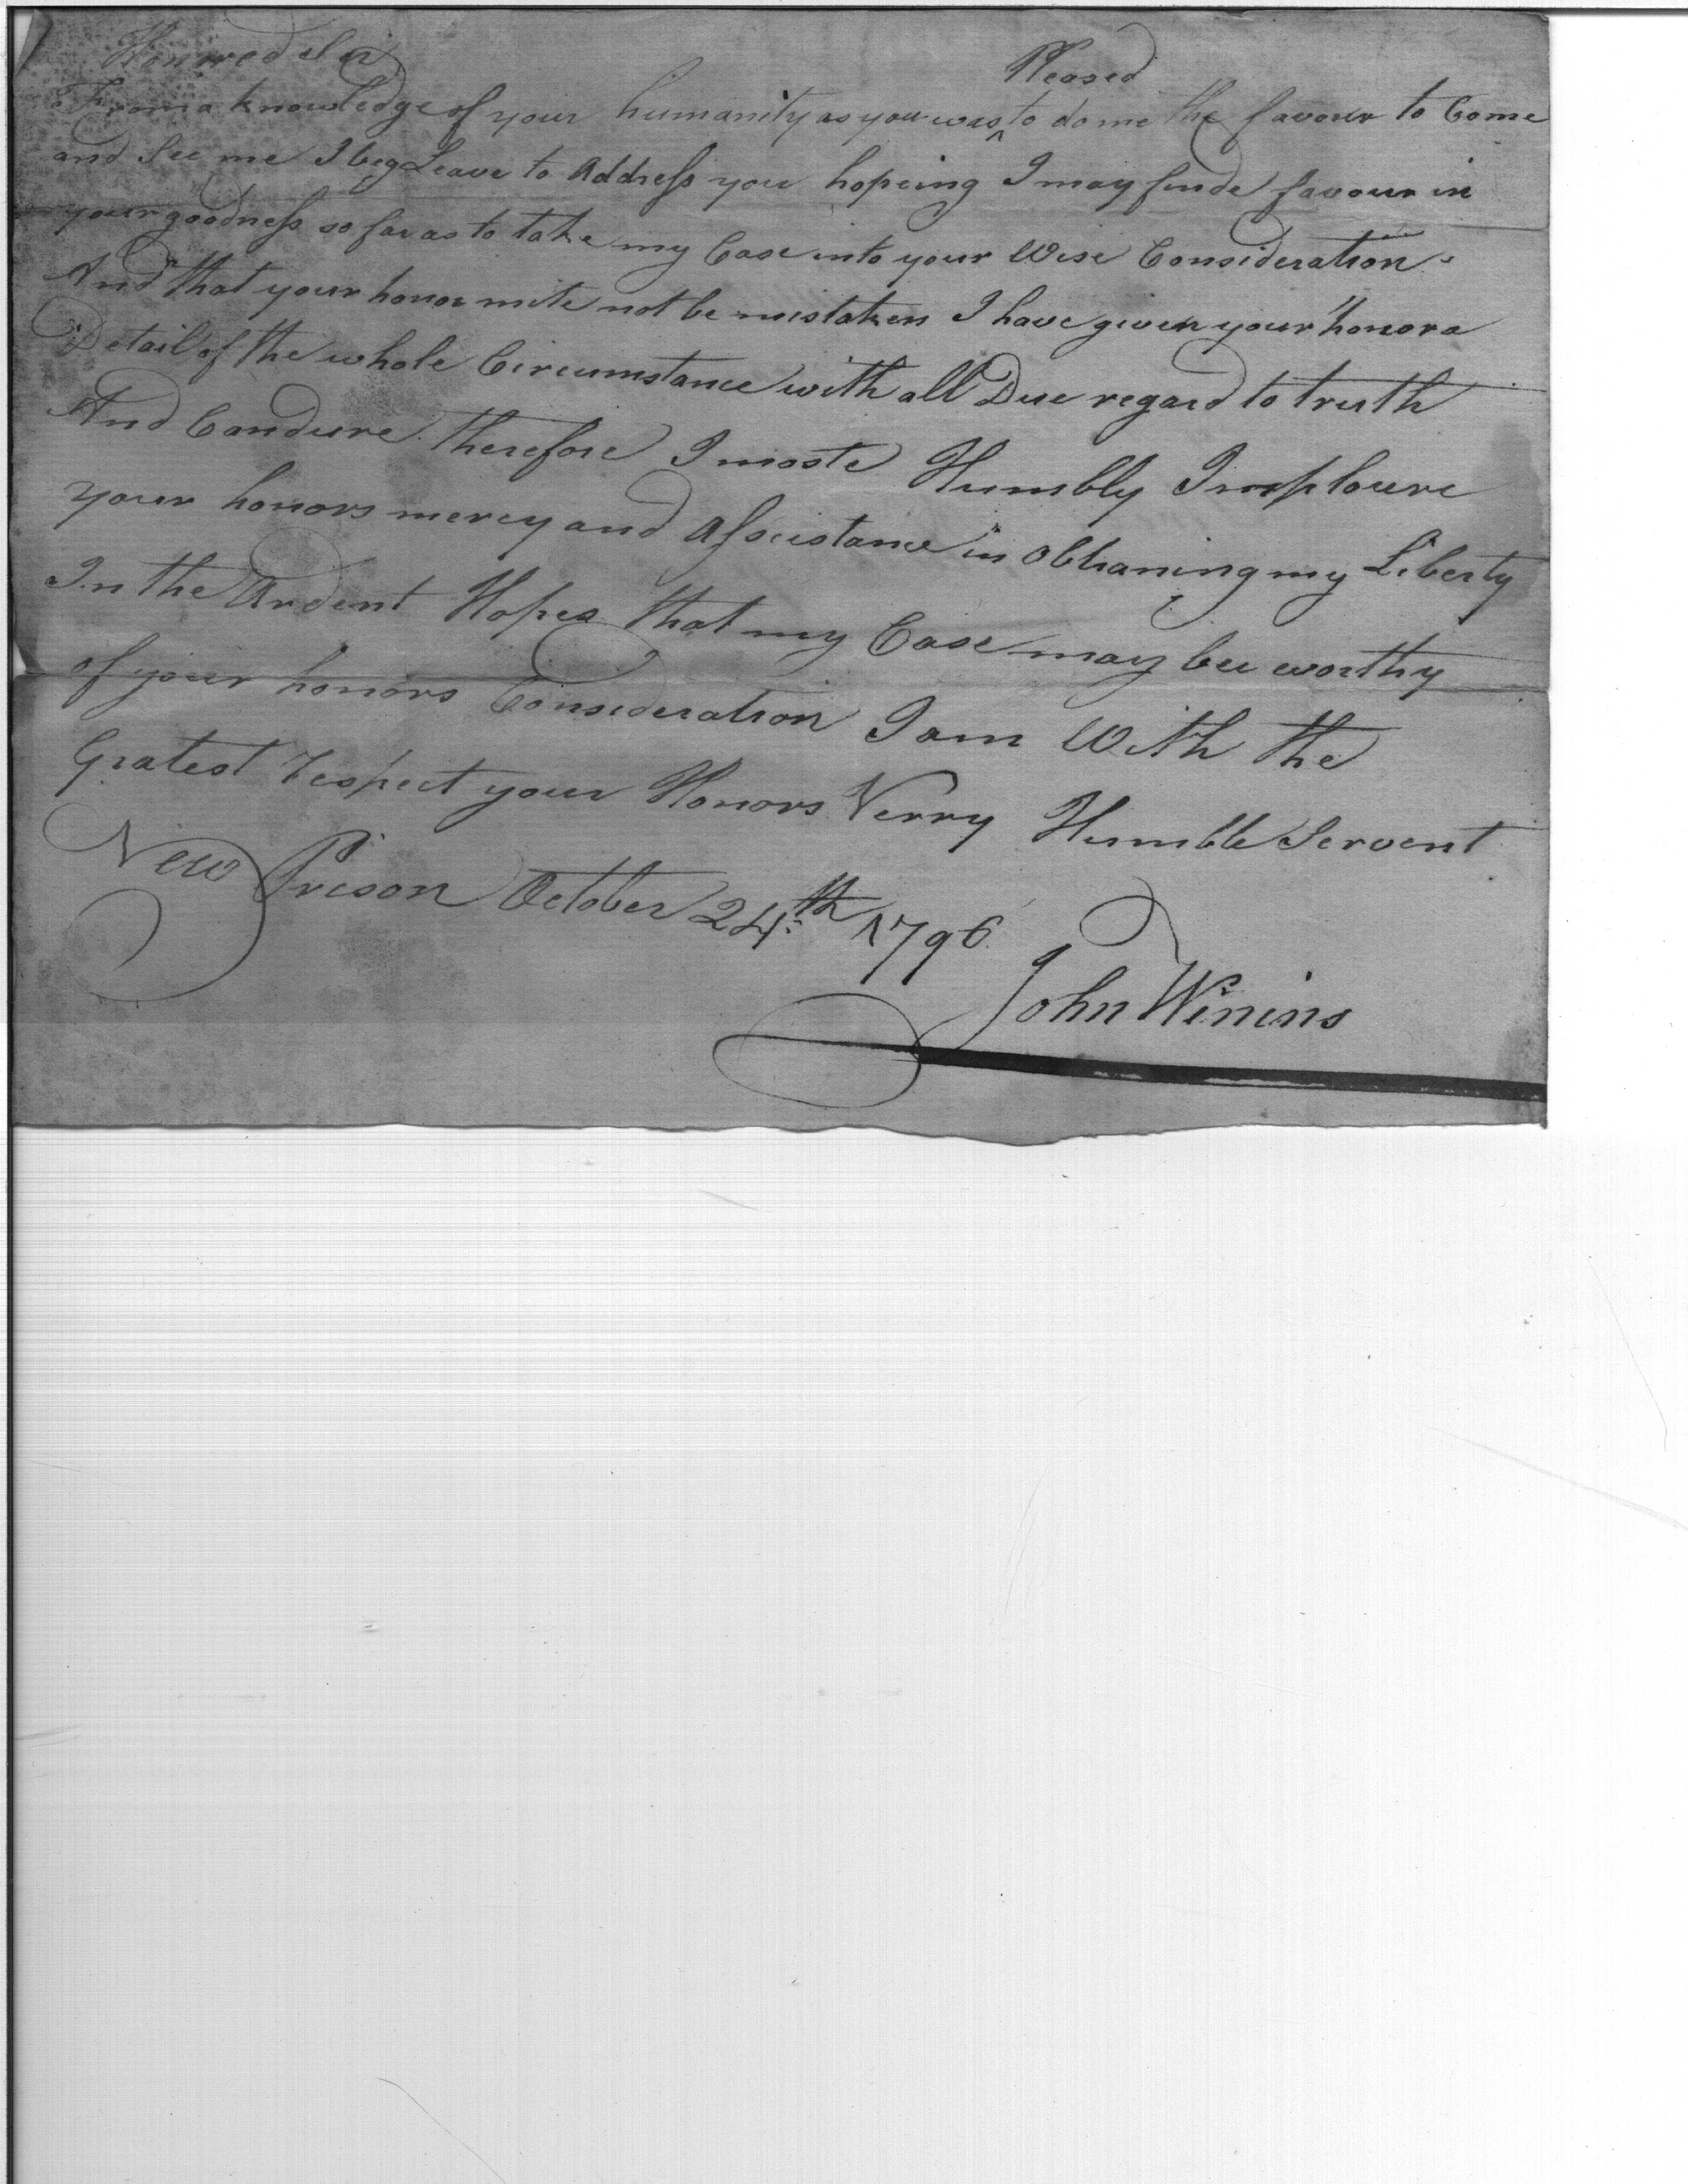 Honured Sir
From a knowledge of your humanity as you was ^Pleased to do me the favour to Come
and See me I beg Leave to Address you hopeing I may finde favour in
your goodness so far as to take my Case into your Wise Consideration
And that your honor mite not be mistaken I have given your honor a
Detail of the whole Circumstance with all Due regard to truth
And Candure. therefore I moste Humbly Imploure
your honors mercy and Assistance in Obtaning my Liberty
In the Ardent Hopes that my Case may bee worthy
of your honors Consideration I am With the
Gratest respect your Honors Verry Humble Servent
New Prison October 24th 1796
John Winins